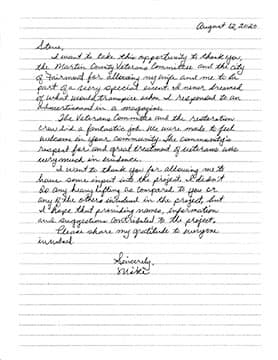 August 12, 2020
Steve,
I want to take this opportunity to thank you,
the Martin County Veterans Committee and the city
of Fairmont for allowing my wife and me to be
part of a very special event. I never dreamed
of what would transpire when I responded to an
advertisement in a magazine.
The Veterans Committee and the restoration
crew did a fantastic job. We were made to feel
welcome in your community. The community's
respect for and great treatment of veterans was
very much in evidence.
I want to thank you for allowing me to
have some input into the project. I didn't
do any heavy lifting as compared to you or
any of the others involved in the project, but
I hope that providing names, information
and suggestions contributed to the project.
Please share my gratitude to everyone
involved.
Sincerely,
Mike